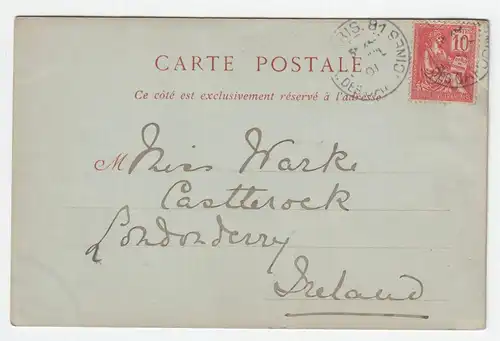 CARTE POSTALE
Ce côté est exclusivement réservé à l'adresse
M Miss Warke
Castlerock
Londonderry
Ireland
10